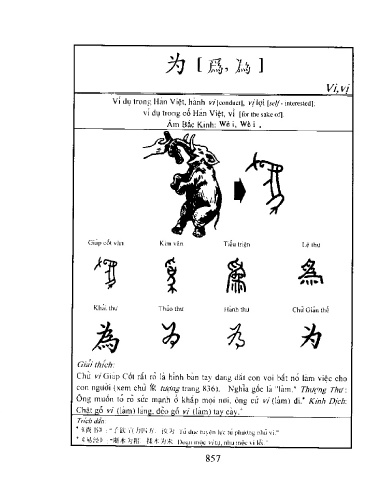 为 [ 爲, 為 ]
Vi, vị
Ví dụ trong Hán Việt, hành vi [conduct], vị lợi [self - interested].
ví dụ trong cổ Hán Việt, vì [for the sake of].
Âm Bắc Kinh: Wéi, Wèi.
Giáp cốt văn Kim văn Tiểu triện Lệ thư
Khải thư Thảo thư Hành thư Chữ Giản thể
為 为 為 为
Giải thích:
Chữ vi Giáp Cốt rất rõ là hình bàn tay đang dắt con voi bắt nó làm việc cho
con người (xem chữ 象 tượng trang 836). Nghĩa gốc là "làm." Thượng Thư:
Ông muốn tỏ rõ sức mạnh ở khắp mọi nơi, ông cứ vi (làm) đi." Kinh Dịch:
Chặt gỗ vi (làm) làng, đẽo gỗ vi (làm) tay cày."
Trích dẫn